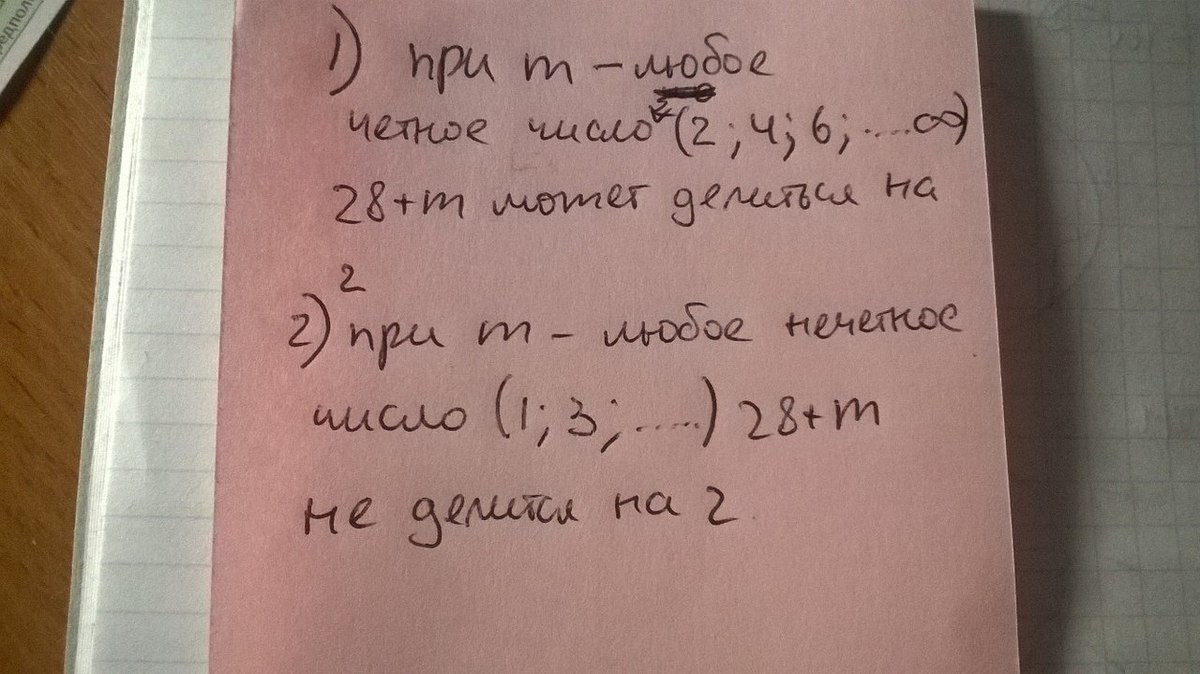 едполо
1) при m – любое
четное число (2; 4; 6; .....∞)
28+m может делиться на
2
2) при m – любое нечетное
число (1; 3; .....) 28+m
не делится на 2.